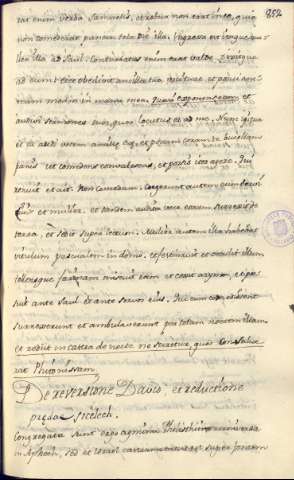 854
rat enim verba Samuelis, et robur non erat in eo, quia
non comederat panem tota die illa. Ingressa est itaque mu-
lier illa ad Saul: conturbatus enim erat valde dixitque
ad eum: Ecce obedivit ancilla tua voci tuæ et posui ani-
mam meam in manu mea. et
audivi sermones tuos, quos locutus es ad me. Nunc igitur
et tu audi vocem ancillæ tuæ, et ponam coram te buccellam
panis, ut comedens convalescas, et possis iter agere. Qui
renuit et ait: Non comedam. Coegerunt autem eum servi
sui et mulier, et tandem audita voce eorum surrexit de
terra, et sedit super lectum. Mulier autem illa habebat
vitulum pascualem in domo, et festinavit et occidit illum
tollensque farinam miscuit eam et coxit azyma, et po-
suit ante Saul et ante servos eius. Qui cum comedissent
surrexerunt et ambulaverunt per totam noctem illam
et rediit in castra de nocte ne sciretur, quod consulue-
rat Phitonissam.
De reversione David, et reductione
prædæ Siclech.
Congregata sunt ergo agmina Philisthiim universa
in Aphech, sed et Israel castrametatus est super fontem